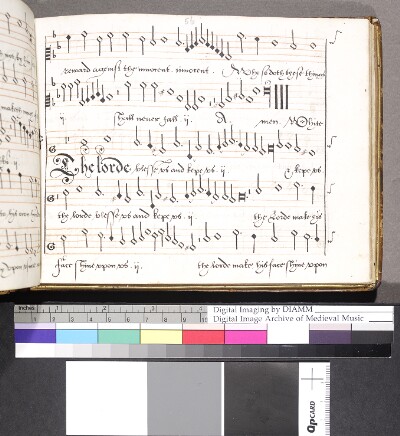 reward agenst the innocent. innocent. Who so doth these thinges
ij shall never fall ij A men. White
The lorde blesse vs and kepe vs. ij. kepe vs.
the lorde blesse vs and kepe vs. ij. the lorde make his
face shyne vpon vs. ij. the lorde make his face shyne vpon
inches 1 2 3 4 5 6 7
Digital Imaging by DIAMM
cm 1 2 3 4 5 6 7 8 9 10
Digital Image Archive of Medieval Music
QPCARD